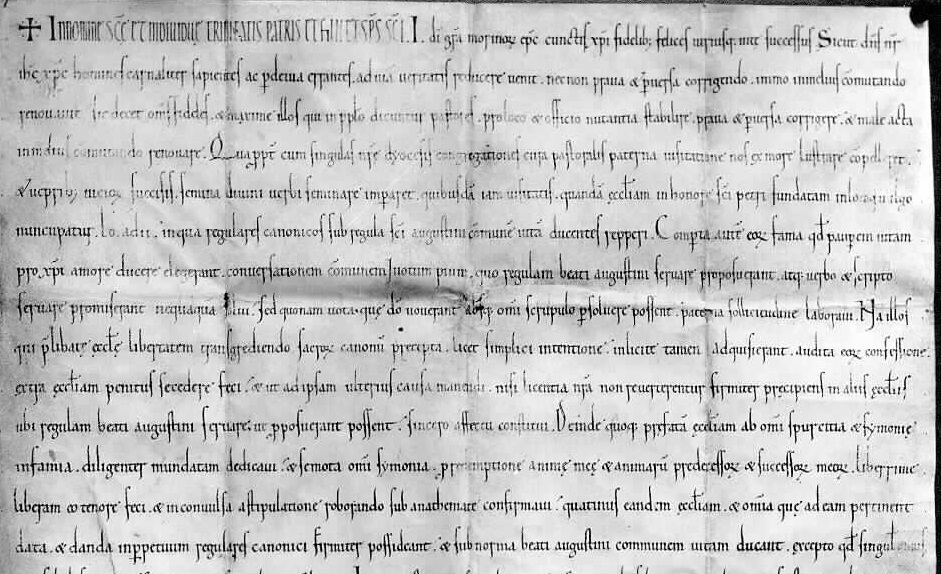 ✝ IN NOMINE SC̄E ET INDIVIDUĘ TRINITATIS PATRIS ET FILII ET SP̄S SC̄I. I. di gr̄a morinoꝝ ep̄c cunctis xp̄i fidelib; felices utriusq; uitę successus Sicut dn̄s nr̄
ih̄c xp̄c homines carnaliter sapientes ac p̱ deuia errantes. ad uiā ueritatis reducere uenit. nec non praua & p̱uersa corrigendo. immo in melius cōmutando
renouauit sic decet om̄s fideles. & maxime illos qui in pp̄lo dicuntur pastores. pro loco & officio nutantia stabilire. praua & p̱uersa corrigere. & male acta
in melius cōmutando renouare. Quapp̄t cum singulas nr̄ę dyocesis congregationes cura pastoralis paterna uisitatione nos ex more lustrare cōpelleret.
successis. semina diuini uerbi seminare imparet. quibusdā iam uisitatis. quandā ęccl̄iam in honore sc̄i petri fundatam in loco qui uulgo
nuncupatur. Lo. adii. in qua regulares canonicos sub regula sc̄i augustini cōmunē uitā ducentes repperi. Comperta autē eoꝝ fama qd̄ paup̱em uitam
pro xp̄i amore ducere elegerant. conuersationem cōmunem uotum pium. quo regulam beati augustini seruare proposuerant. atq; uerbo & scripto
seruare promiserant nequaquā. sed quoniam uota. quę dō uouerant absq; omī scrupulo p̱soluere possent. paterna sollicitudine laboraui. Nā illos
qui p̄libatę ęccl̄ę libertatem transgrediendo sacroꝝ canonū precepta. licet simplici intentione. inlicite tamen adquisierant. audita eoꝝ confessione.
extra ęccl̄iam penitus secedere feci. & ut ad ipsam ulterius causa manendi. nisi licentia nr̄a non reuerterentur firmiter pręcipiens in aliis ęccl̄iis
ubi regulam beati augustini seruare. ut p̱posuerant possent. sincero affectu constitui. Deinde quoq; prefatā ęccl̄iam ab omī spurcitia & symonię
infamia. diligenter mundatam dedicaui. & semota omī symonia. presumptione animę meę & animarū predecessoꝝ & successoꝝ meoꝝ. liberrime
liberam eo tenore feci. & inconuulsa astipulatione roborando sub anathemate confirmaui. quatinus eandem ęccl̄iam. & omīa quę ad eam pertinent
data. & danda inp̱petuum regulares canonici firmiter possideant. & sub norma beati augustini communem uitam ducant. excepto qd̄